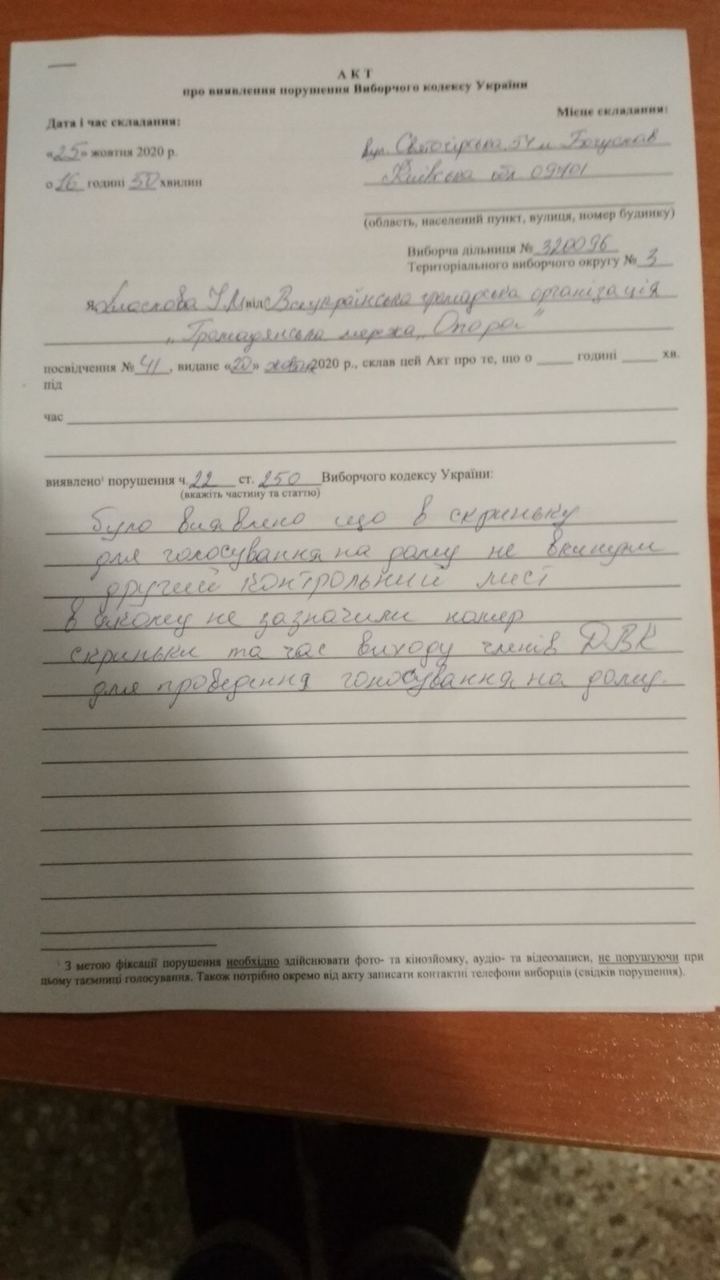 АКТ
про виявлення порушення Виборчого кодексу України
Дата і час складання:
Місце складання:
«25» жовтня 2020 р.
вул. 54 м. Богуслав
о 16 годині 50 хвилин
Київська обл 09701
(область, населений пункт, вулиця, номер будинку)
Виборча дільниця № 320096
Територіального виборчого округу № 3
Я, від Всеукраїнська громадська організація
„Громадянська мережа „Опора"
посвідчення № 41, видане «20» 2020 р., склав цей Акт про те, що о _____ годині _____ хв.
під
час
виявлено¹ порушення ч. 22 ст. 250 Виборчого кодексу України:
(вкажіть частину та статтю)
було виявлено що в скриньку
для голосування на дому не вкинули
другий контрольний лист
в якому не зазначили номер
скриньки та час виходу членів ДВК
для проведення голосування на дому.
¹ З метою фіксації порушення необхідно здійснювати фото- та кінозйомку, аудіо- та відеозаписи, не порушуючи при
цьому таємниці голосування. Також потрібно окремо від акту записати контактні телефони виборців (свідків порушення).